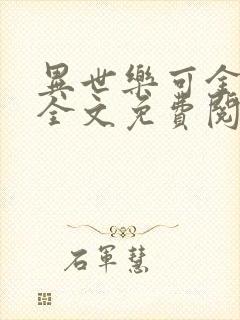 異世樂可全
全文免費閱
石軍慧